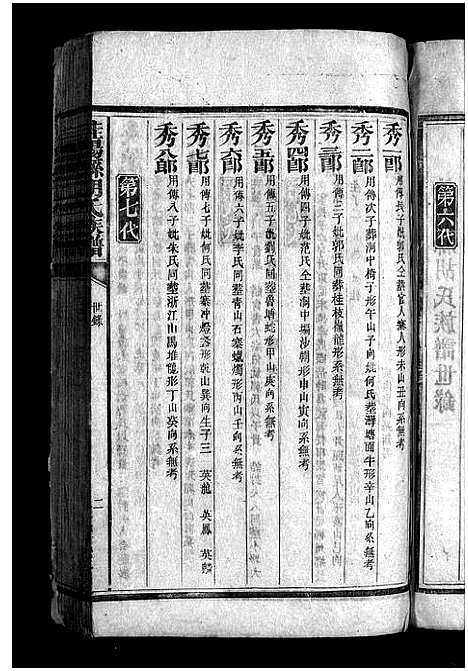 第六代
胡氏族譜世錄
秀一郎 用傳長子妣郭氏仝墓官人形未山丑向系無考
秀二郎 用傳次子葬洞中椅子形午山子向妣何氏墓灣塘面牛形辛山乙向系無考
秀三郎 用傳三子妣郭氏同葬桂枝梅龍形系無考
秀四郎 用傳四子妣范氏仝墓洞中塲沙朝形申山寅向系無考
秀五郎 用傳五子妣劉氏仝墓形甲山庚向系無考
秀六郎 用傳六子妣李氏同墓青山石寨蠟燭形丙山壬向系無考
秀七郎 用傳七子妣何氏同墓寨冲燈盞形乾山巽向生子三 英龍 英鳳 英麟
秀八郎 用傳八子妣朱氏同墓浙江山馬堆龍形丁山癸向系無考
第七代
桂陽縣胡氏族譜
世錄
二